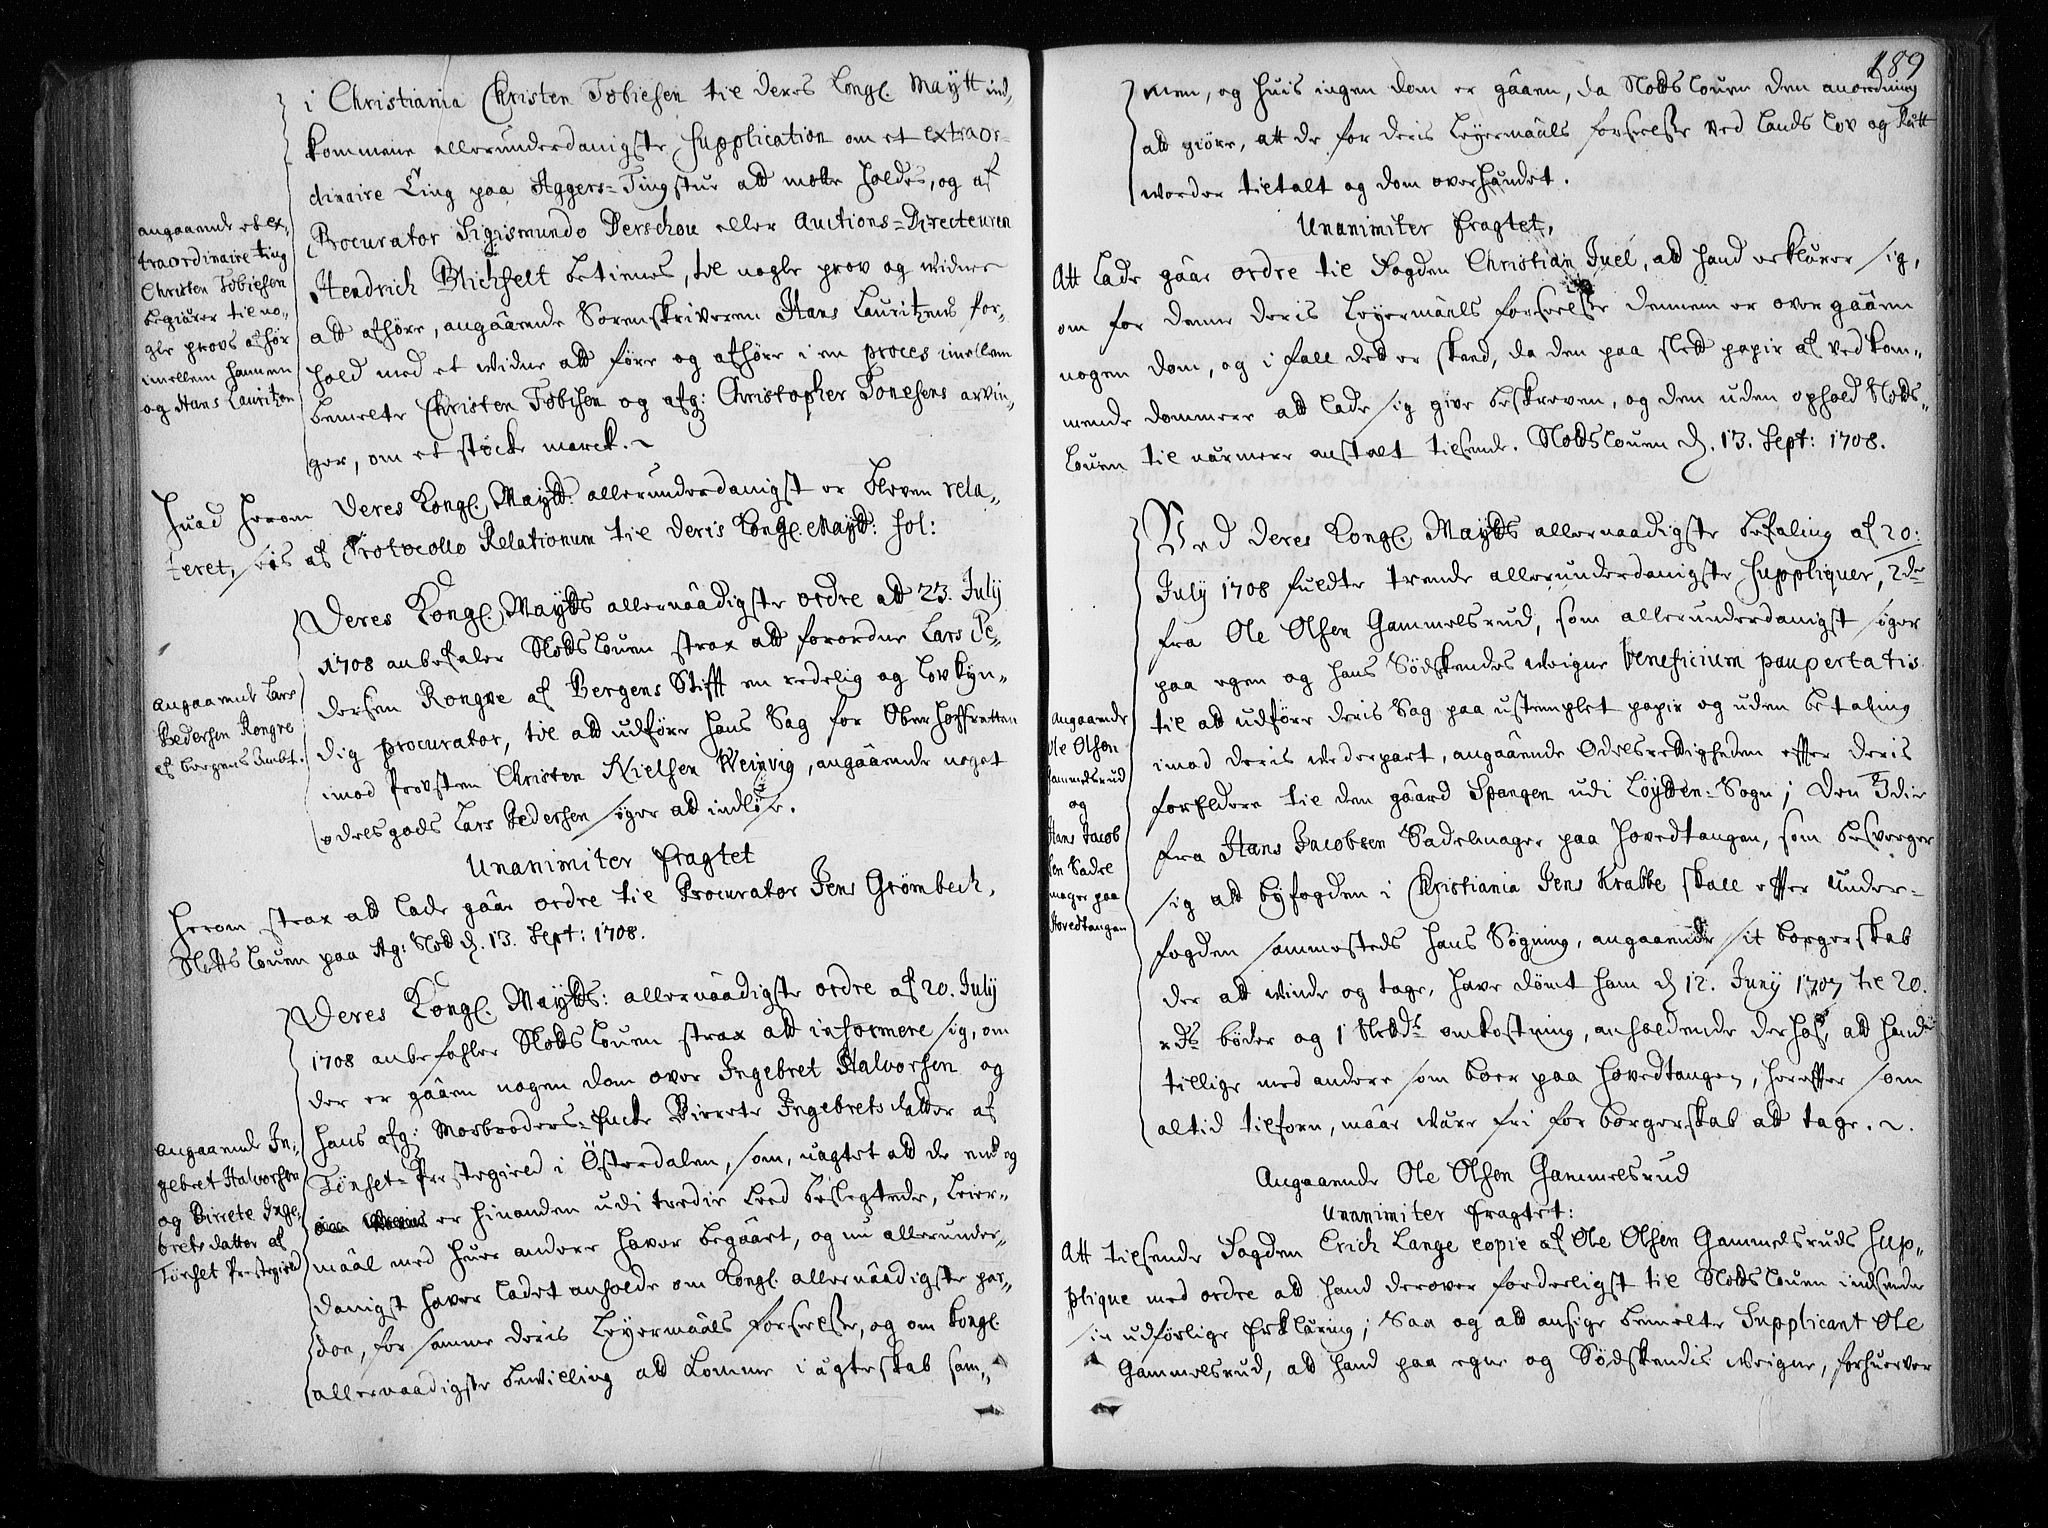 i Christiania Christen Tobiesen til deres Kongl. Maytt ind„
kommene allerunderdanigste Supplication om et extraor-
dinaire Ting paa Aggers=Tingstue att motte holdes, og af
Procurator Sigismundo Derschou eller Auctions=Directeuren
Hendrich Blichfelt betienes, til nogle prov og Widner
att afhöre, angaaende Sorenskriveren Hans Lauritzens for„
hold med et widne att före og afhöre i en proces imellem
bemelte Christen Tobisen og afg: Christopher Tonesens arvin„
ger, om et støcke marck.
angaaende et ex„
traordinaire ting
Christen Tobiesen
begiärer til no„
gle provs afhör
imellem hannem
og Hans Lauritzen
Huad herom Deres Kongl. Maytt: allerunderdanigst er bleven rela„
teret, sees af Protocollo Relationum til deris Kongl. Maytt: fol:
Deres Kongl. Maytts allernaadigste ordre att 23. July
1708 anbefaler Slotts Louen strax att forordne Lars Pe„
dersen Rongve af Bergens Stifft en redelig og lovkyn„
dig procurator, til att udföre hans Sag for Oberhoffretten
imod Provsten Christen Nielsen Weinvig, angaaende noget
odelsgods Lars Pedersen söger att indløse.
angaaende Lars
Pedersen Rongve
af bergens Ambt.
Unanimiter fragtet
Herom strax att lade gaae ordre til Procurator Jens Grömbech,
Slotts Louen paa Ag: Slott d. 13. Sept: 1708.
Deres Kongl. Maytts: allernaadigste ordre af 20. July
1708 anbefahler Slotts Louen strax att informere sig, om
der er gaaen nogen dom over Ingebret Halvorsen og
hans afg: Morbroders= Encke Birrete Ingebretsdatter af
Tönset= Prestegield i Österdalen, som, uagtet att de end og
er hinanden udi tredie Leed beslegtede, Leier„
maal med huer andre haver begaaet, og nu allerunder„
danigst haver ladet anholde om Kongl. allernaadigste par„
don, for samme deris Leyermaals forseelse, og om Kongl.
allernaadigste bewilling att komme i ägteskab sam„
Angaaende In„
gebret Halvorsen
og Birrete Inge„
bretsdatter af
Tönset Prestegield
189
men, og huis ingen dom er gaaen, da Slotts Louen den anordning
att giöre, att de for deris Leyermaals forseelse ved Lands Lov og Rätt
worder tiltalt og dom overhändet.
Unanimiter fragtet,
Att lade gaae ordre til Fogden Christian Juel, att hand erklärer sig,
om for denne deris Leyermaals forseelse dennem er overgaaen
nogen dom, og i fall det er skeed, da den paa slett papir af vedkom„
mende dommere att lade sig give beskreven, og den uden ophold Slotts„
Louen til närmere anstalt tilsende. Slotts Louen d. 13. Sept: 1708.
Ved Deres Kongl. Maytts allernaadigste befaling af 20:
July 1708 fuldte trende allerunderdanigste Suppliquer, 2de
fra Ole Olsen Gammelsrud, som allerunderdanigst söger
paa egen og hans Södskendes weigne beneficium paupertatis
til att udföre deris Sag paa ustemplet papir og uden betaling
imod deris wederpart, angaaende Odelsrettigheden effter deris
forfeldere til den gaard Spangen udi Löyten= Sogn; Den 3die
fra Hans Jacobsen Sadelmager paa Hovedtangen, som besverger
sig att byfogden i Christiania Jens Krabbe skall effter under-
fogden sammesteds hans Sögning, angaaende sit borgerskab
der att winde og tage, have dömt ham d. 12. Juny 1707 til 20.
rd böder og 1 omkostning, anholdende derhos, att hand
tillige med andre som boer paa Hovedtangen, hereffter som
altid tilforn, maae wäre fri for borgerskab att tage.
angaaende
Ole Olsen
Gammelsrud
og
Hans Jacob
sen Sadel
mager paa
Hovedtangen
Angaaende Ole Olsen Gammelsrud
Unanimiter fragtet:
Att tilsende Fogden Erich Lange copie af Ole Olsen Gammelsruds Sup„
plique med ordre att hand derover forderligst til Slotts Louen indsende
sin udförlige Erkläring; Saa og att ansige bemelte Supplicant Ole
Gammelsrud, att hand paa egne og Södskendis weigne, forhuerver